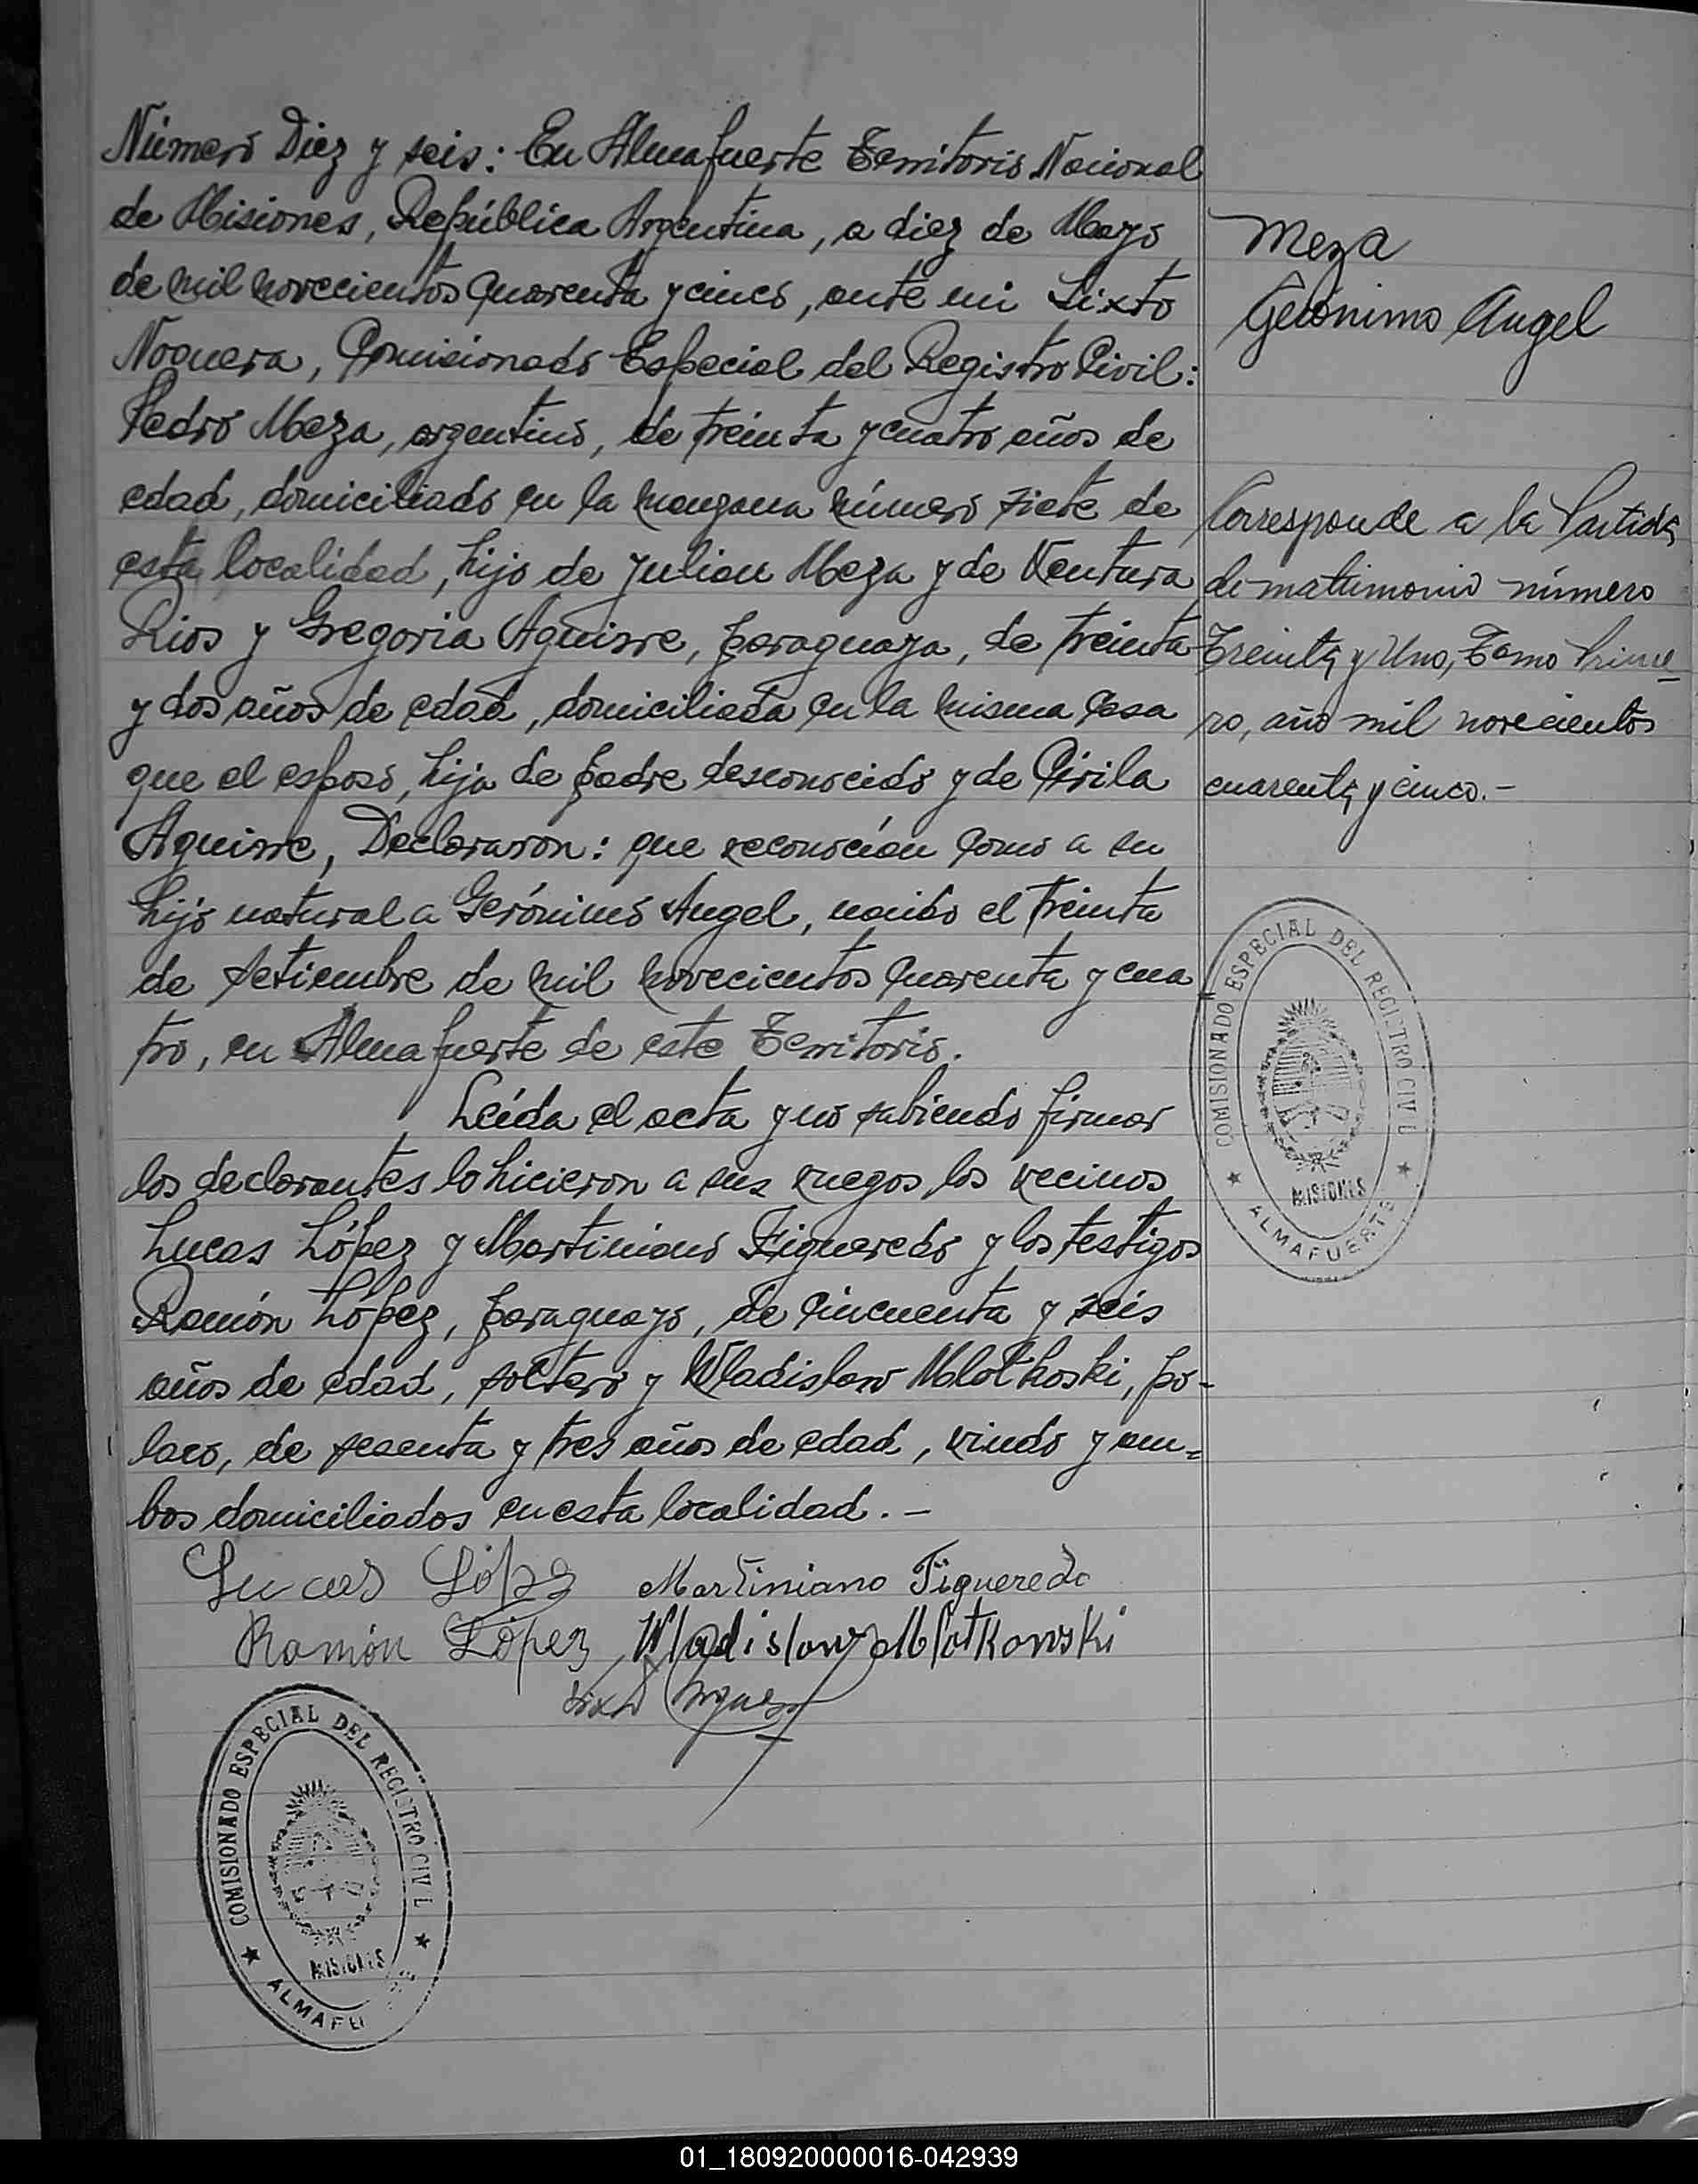 Número Diez y seis: En Almafuerte Territorio Nacional
de Misiones, República Argentina, a diez de Mayo
de mil novecientos quarenta y cinco, ante mi Sixto
Noguera, Comisionado Especial del Registro Civil:
Pedro Meza, argentino, de treinta y cuatro años de
edad, domiciliado en la manzana número siete de
esta localidad, hijo de Julian Meza y de Ventura
Rios y Gregoria Aguirre, paraguaya, de treinta
y dos años de edad, domiciliada en la misma casa
que el esposo, hija de padre desconocido y de Cirila
Aguirre, Declararon: que reconocían como a su
hijo natural a Gerónimo Angel, nacido el treinta
de setiembre de mil novecientos quarenta y cua
tro, en Almafuerte de este Territorio.
Leída el acta y no sabiendo firmar
los declarantes lo hicieron a sus ruegos los vecinos
Lucas López y Martiniano Figueredo y los testigos
Ramón López, paraguayo, de cincuenta y seis
años de edad, soltero y Wladislaw Mlotkoski, po-
laco, de sesenta y tres años de edad, viudo y am=
bos domiciliados en esta localidad. -
Lucas López Martiniano Figueredo
Ramón López Wladislaw Mlotkowski
COMISIONADO ESPECIAL DEL REGISTRO CIVIL
MISIONES
ALMAFU
Meza
Gerónimo Angel
Corresponde a la Partida
de matrimonio número
Treinta y Uno, Tomo Prime_
ro, año mil novecientos
cuarenta y cinco.-
COMISIONADO ESPECIAL DEL REGISTRO CIVIL
MISIONES
ALMAFUERTE
01_180920000016-042939